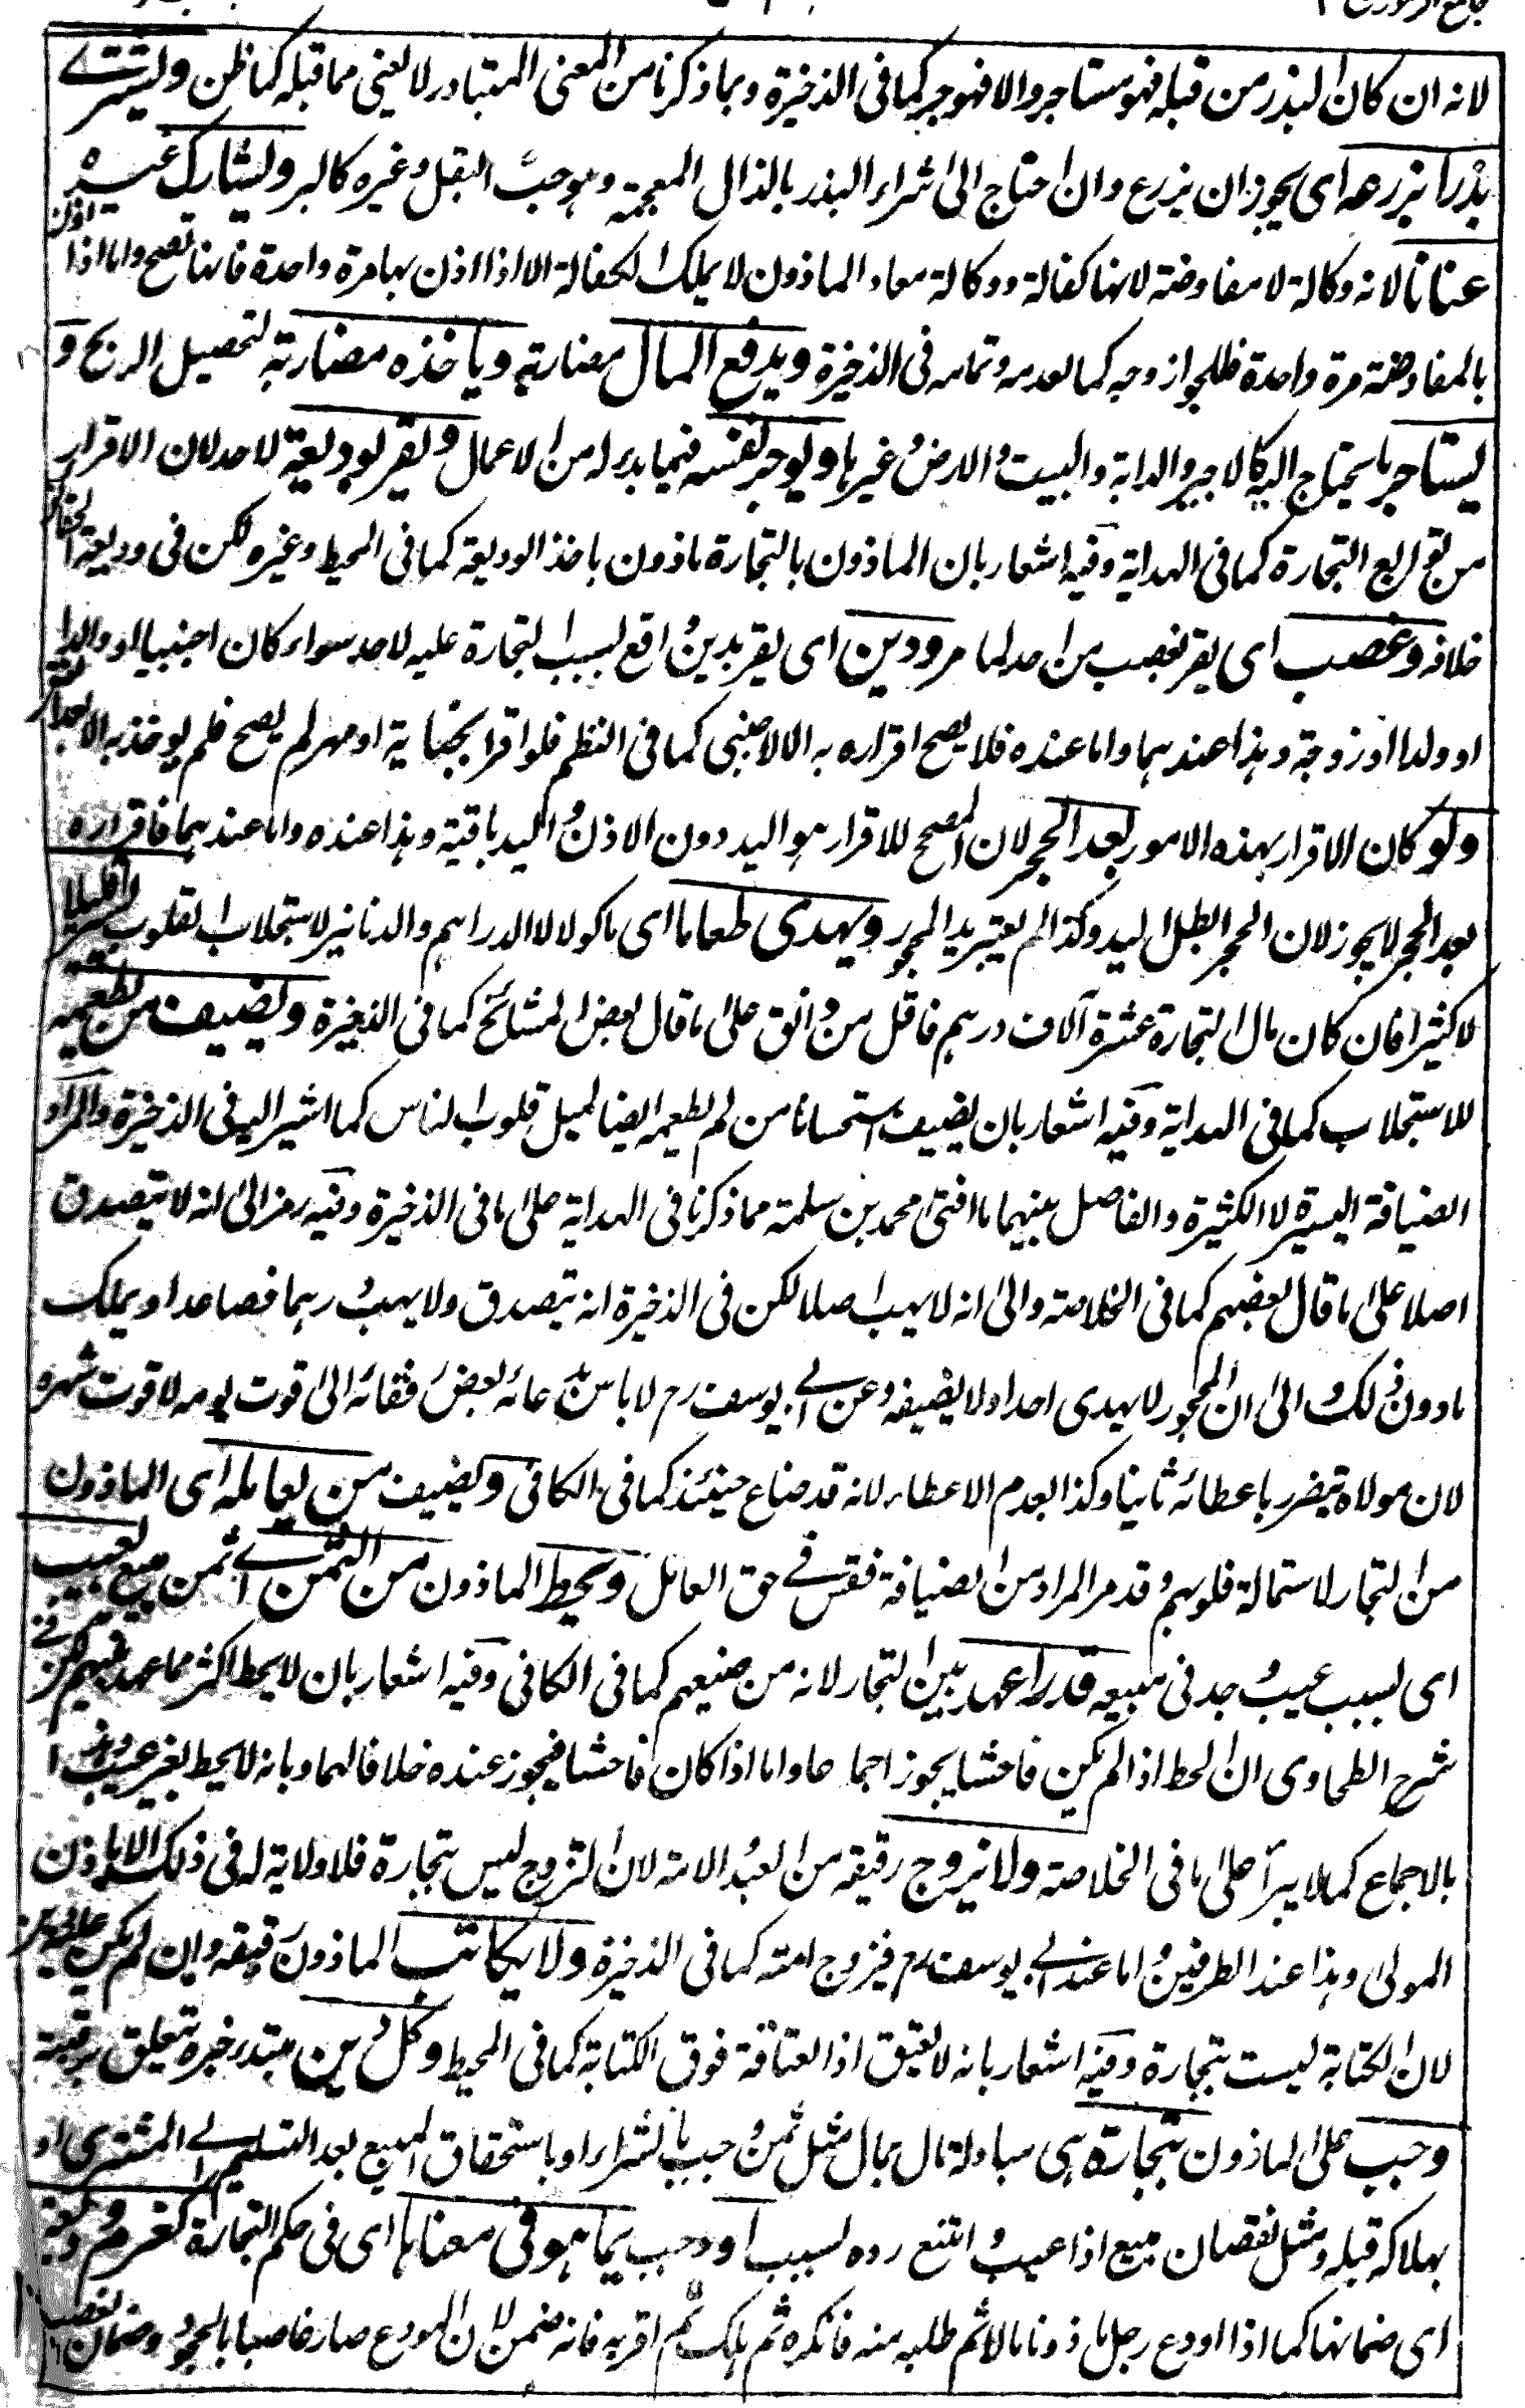 لانه ان كان البذر من قبله فهو مستاجر والا فهو جر كما فى الذخيرة وبما ذكرنا من المعنى المتبادر لا يغنى مما قبله كما ظن ويشترى
بذرا يزرعه اى يجوز ان يزرع وان احتاج الى شراء البذر بالذال المعجمة وهو حب البقل وغيره كالبر ويشارك غيره
عنانا لانه وكالة لا مفاوضة لانها كفالة ووكالة معا والماذون لا يملك الكفالة الا اذا اذن بها مرة واحدة فانها تصح واما اذا اذن
بالمفاوضة مرة واحدة فللجواز وجه كما لعدمه وتمامه فى الذخيرة ويدفع المال مضاربة وياخذه مضاربة لتحصيل الربح و
يستاجر ما يحتاج اليه كالاجير والدابة والبيت والارض وغيرها ويوجر نفسه فيما بدا له من الاعمال ويقر بوديعة لاحد لان الاقرار
من توابع التجارة كما فى الهداية وفيه اشعار بان الماذون بالتجارة ماذون باخذ الوديعة كما فى المحيط وغيره لكن فى وديعة
خلافه وغصب اى يقر بغصب من احد لما مر ودين اى يقر بدين واقع بسبب التجارة عليه لاحد سواء كان اجنبيا او والدا
او ولدا او زوجة وهذا عندهما واما عنده فلا يصح اقراره به الا لاجنبى كما فى النظم فلو اقر بجناية او مهر لم يصح فلم يوخذ به الا بعد العتق
ولو كان الاقرار بهذه الامور بعد الحجر لان المصحح للاقرار هو اليد دون الاذن واليد باقية وهذا عنده واما عندهما فاقراره
بعد الحجر لا يجوز لان الحجر ابطل اليد وكذا لم يعتبر يد المحجور ويهدى طعاما اى ماكولا لا الدراهم والدنانير لاستجلاب القلوب يسيرا قليلا
لا كثيرا فان كان مال التجارة عشرة آلاف درهم فاقل من دانق على ما قال بعض المشائخ كما فى الذخيرة ويضيف من يطعمه
للاستجلاب كما فى الهداية وفيه اشعار بان يضيف استحسانا من لم يطعمه ايضا لميل قلوب الناس كما اشير اليه فى الذخيرة والمراد
الضيافة اليسيرة لا الكثيرة والفاصل بينهما ما افتى محمد بن سلمة مما ذكرنا فى الهداية على ما فى الذخيرة وفيه رمز الى انه لا يتصدق
اصلا على ما قال بعضهم كما فى الخلاصة والى انه لا يهب اصلا لكن فى الذخيرة انه يتصدق ولا يهب درهما فصاعدا ويملك
ما دون ذلك والى ان المحجور لا يهدى احدا ولا يضيفه وعن ابى يوسف رح لا باس بدعائه بعض رفقائه الى قوت يومه لا قوت شهره
لان مولاه يتضرر باعطائه ثانيا وكذا بعدم الاعطاء لانه قد ضاع حينئذ كما فى الكافى ويضيف من يعامله اى الماذون
من التجار لاستمالة قلوبهم وقد مر المراد من الضيافة فقس فى حق العامل ويحط الماذون من الثمن اى ثمن مبيع بعيب
اى بسبب عيب وجد فى مبيعه قدرا عهد بين التجار لانه من صنيعهم كما فى الكافى وفيه اشعار بان لا يحط اكثر مما عهد بينهم لكن فى
شرح الطحاوى ان الحط اذا لم يكن فاحشا يجوز اجماعا واما اذا كان فاحشا فيجوز عنده خلافا لهما وبانه لا يحط بغير عيب وهذا
بالاجماع كما لا يبرأ على ما فى الخلاصة ولا يزوج رقيقه من العبد والامة لان التزوج ليس بتجارة فلا ولاية له فى ذلك الا باذن
المولى وهذا عند الطرفين واما عند ابى يوسف رح فيزوج امته كما فى الذخيرة ولا يكاتب الماذون رقيقه وان لم يكن عليه دين
لان الكتابة ليست بتجارة وفيه اشعار بانه لا يعتق اذ العتاقة فوق الكتابة كما فى المحيط وكل دين مبتدأ خبره يتعلق برقبته
وجب على الماذون بتجارة هى مبادلة مال بمال مثل ثمن وجب بالشراء او باستحقاق المبيع بعد التسليم الى المشترى او
بهلاكه قبله ومثل نقصان مبيع اذا عيب وامتنع رده بسبب او وجب بما هو فى معناها اى فى حكم التجارة كغرم وديعة
اى ضمانها كما اذا اودع رجل ماذونا مالا ثم طلبه منه فانكره ثم هلك ثم اقر به فانه ضمن لان المودع صار غاصبا بالجحود وضمان غصب